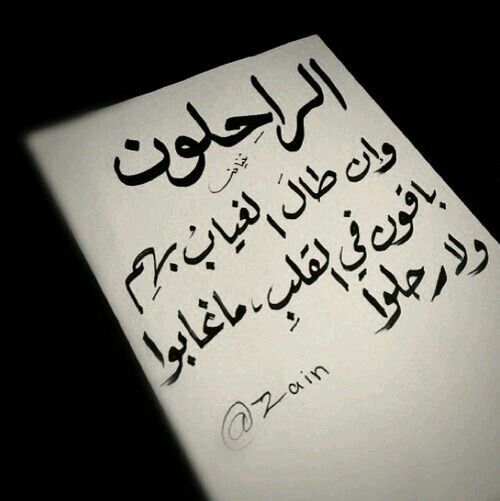 الراحِلون
وإن طالَ الغيابُ بهِم
باقون في القلبِ، ما غابوا
ولا رحلوا
@Zain